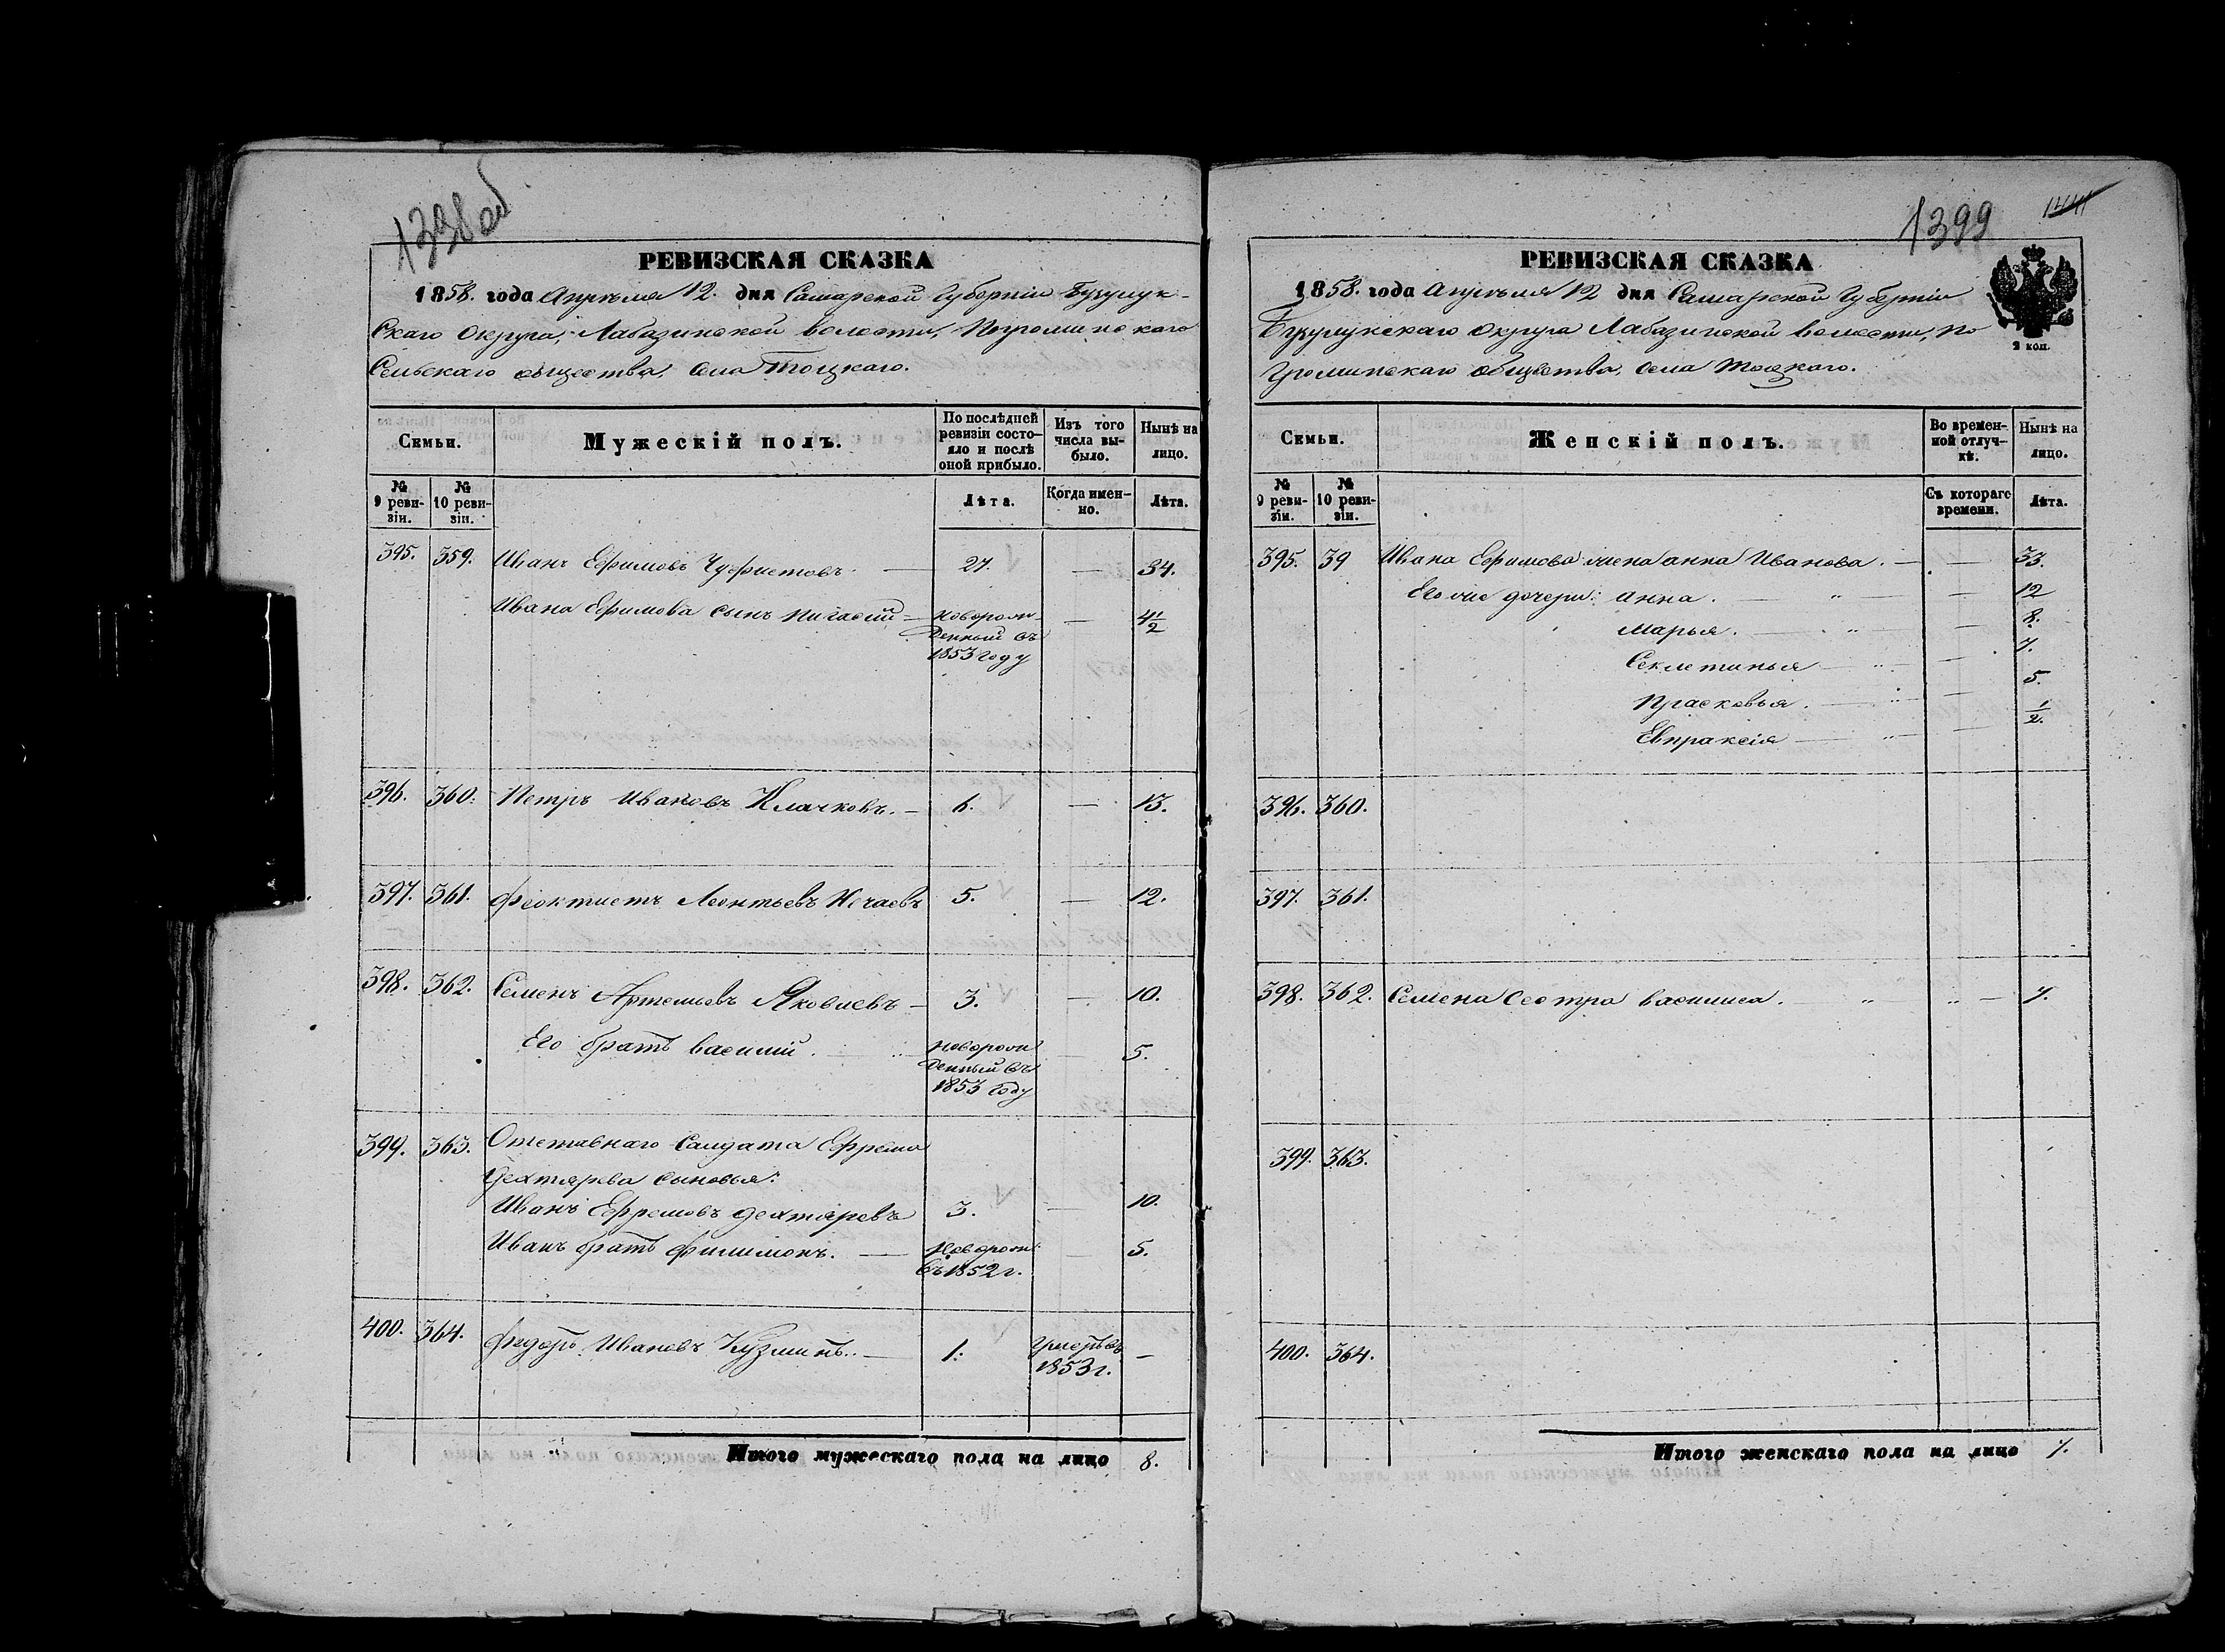 1398об
РЕВИЗСКАЯ СКАЗКА
1858. года Апрѣля 12. дня Самарской Губерніи Бузулук-
скаго Округа, Лабазинской волости, Погроминскаго
Сельскаго общества, села Тоцкаго.
Семьи.
Мужескій полъ.
По послѣдней ревизіи состо-яло и послѣ оной прибыло.
Изъ того числа вы-было.
Нынѣ на лицо.
№ 9 реви-зіи.
№ 10 реви-зіи.
Лѣта.
Когда имен-но.
Лѣта.
395. 359. Иванъ Ефимовъ — 27. — 34.
Ивана Ефимова сынъ Пигасій — Новорож-денный въ 1853 году — 4 1/2
396. 360. Петръ Ивановъ Клачковъ. — 6. — 13.
397. 361. Феоктистъ Леонтьевъ Нечаевъ 5. — 12.
398. 362. Семенъ Артемьевъ Яковлевъ — 3. — 10.
Его братъ Василій. — Новорож-денный въ 1853 году — 5.
399. 363. Отставнаго Салдата Ефрема
Дехтярева сыновья:
Иванъ Ефремовъ Дехтяревъ 3. — 10.
Иванъ братъ Филимонъ. — Новорож: въ 1852 г. — 5.
400. 364. Федоръ Ивановъ Кузминъ. — 1. Умеръ въ 1853 г. —
Итого мужескаго пола на лицо 8.
1399
РЕВИЗСКАЯ СКАЗКА
1858. года Апрѣля 12 дня Самарской Губерніи
Бузулукскаго Округа Лабазинской волости, По
громинскаго общества, села Тоцкаго.
2 коп.
Семьи.
Женскій полъ.
Во времен-ной отлуч-кѣ.
Нынѣ на лицо.
№ 9 реви-зіи.
№ 10 реви-зіи.
Съ котораго времени.
Лѣта.
395. 39 Ивана Ефимова жена Анна Иванова. — — 33.
Его же дочери: Анна. — „ — 12
Марья. — „ — 8.
Секлетинья — „ — 7.
Прасковья. — „ — 5.
Евпраксія — „ — 1/2.
396. 360.
397. 361.
398. 362. Семена Сестра Василиса. „ „ — 7.
399. 363.
400. 364.
Итого женскаго пола на лицо 7.